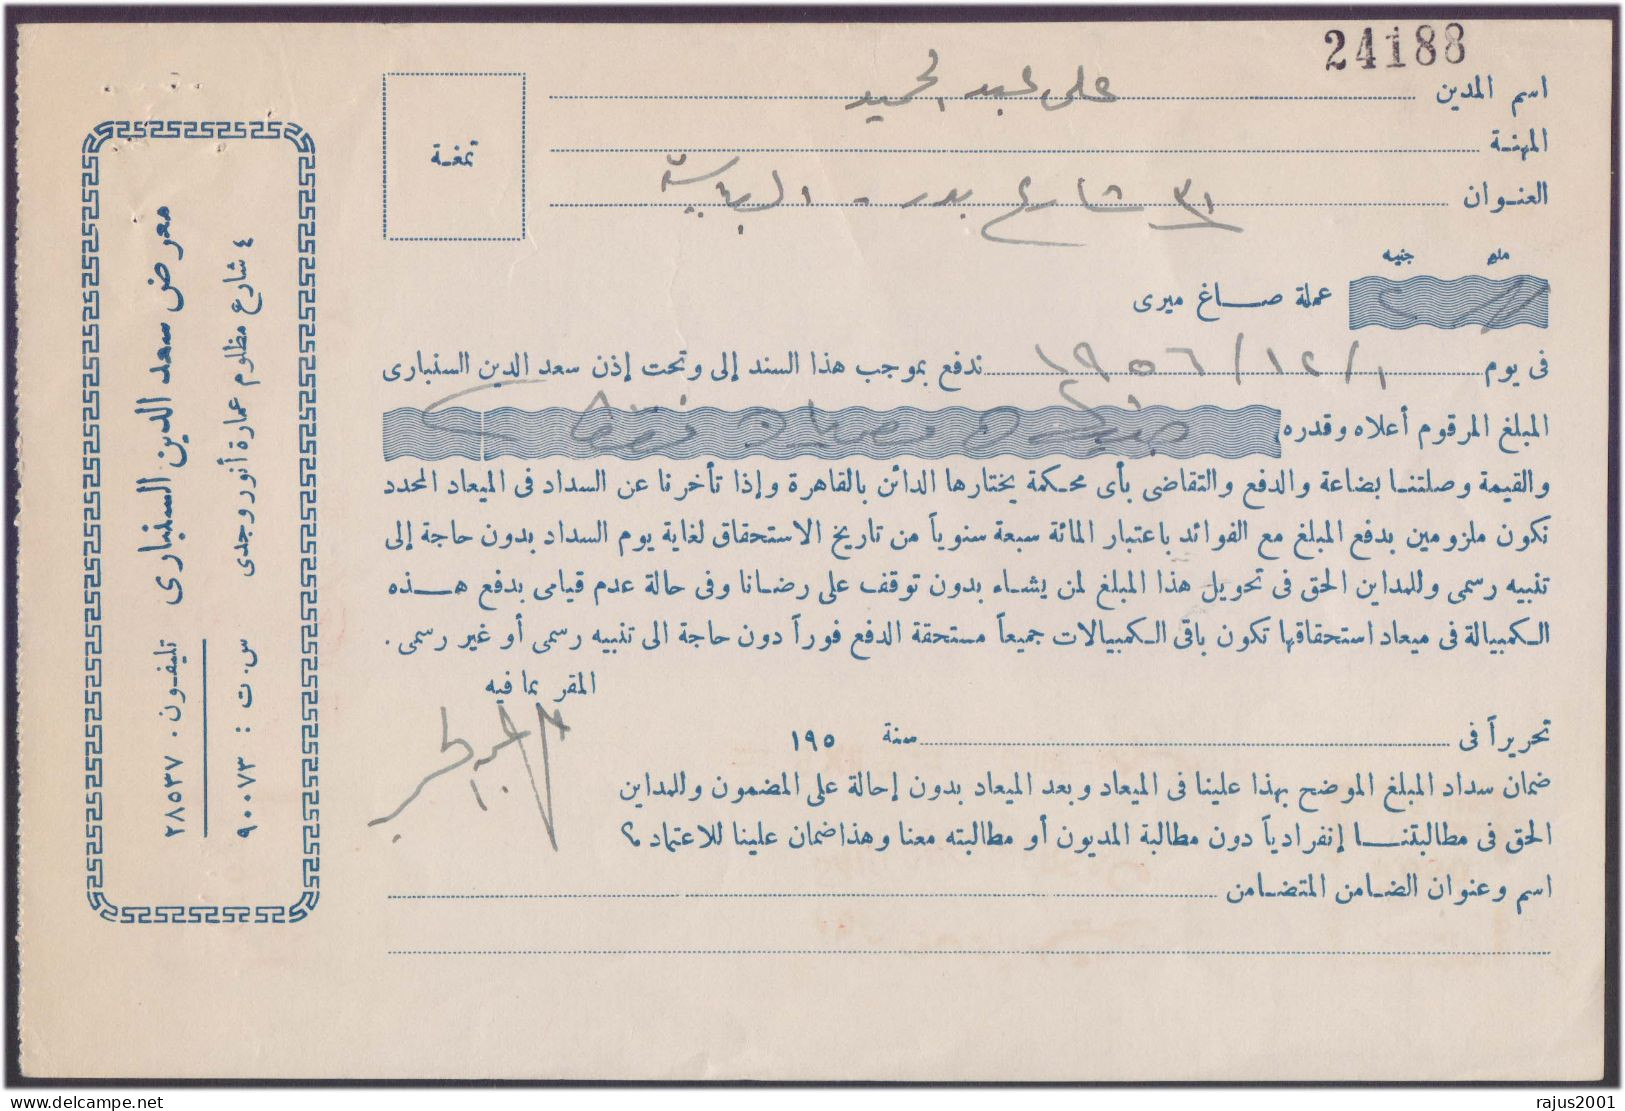 24188
اسم المدين على عبد الحميد
المهنة
العنوان ٣١ شارع بدر -
تمغة
مليم جنيه
عملة صاغ ميرى
فى يوم ١/١٢/١٩٥٦ ندفع بموجب هذا السند إلى وتحت إذن سعد الدين السنبارى
المبلغ المرقوم أعلاه وقدره فقط
والقيمة وصلتنا بضاعة والدفع والتقاضى بأى محكمة يختارها الدائن بالقاهرة وإذا تأخرنا عن السداد فى الميعاد المحدد
نكون ملزومين بدفع المبلغ مع الفوائد باعتبار المائة سبعة سنوياً من تاريخ الاستحقاق لغاية يوم السداد بدون حاجة إلى
تنبيه رسمى وللمداين الحق فى تحويل هذا المبلغ لمن يشاء بدون توقف على رضانا وفى حالة عدم قيامى بدفع هذه
الكمبيالة فى ميعاد استحقاقها تكون باقى الكمبيالات جميعاً مستحقة الدفع فوراً دون حاجة الى تنبيه رسمى أو غير رسمى .
المقر بما فيه
تحريراً فى سنة ١٩٥
ضمان سداد المبلغ الموضح بهذا علينا فى الميعاد وبعد الميعاد بدون إحالة على المضمون وللمداين
الحق فى مطالبتنا إنفرادياً دون مطالبة المديون أو مطالبته معنا وهذا ضمان علينا للاعتماد ؟
اسم وعنوان الضامن المتضامن
معرض سعد الدين السنبارى تليفون . ٢٨٥٣٧
٤ شارع مظلوم عمارة أنور وجدى س . ت : ٩٠٠٧٣
delcampe.net
rajus2001